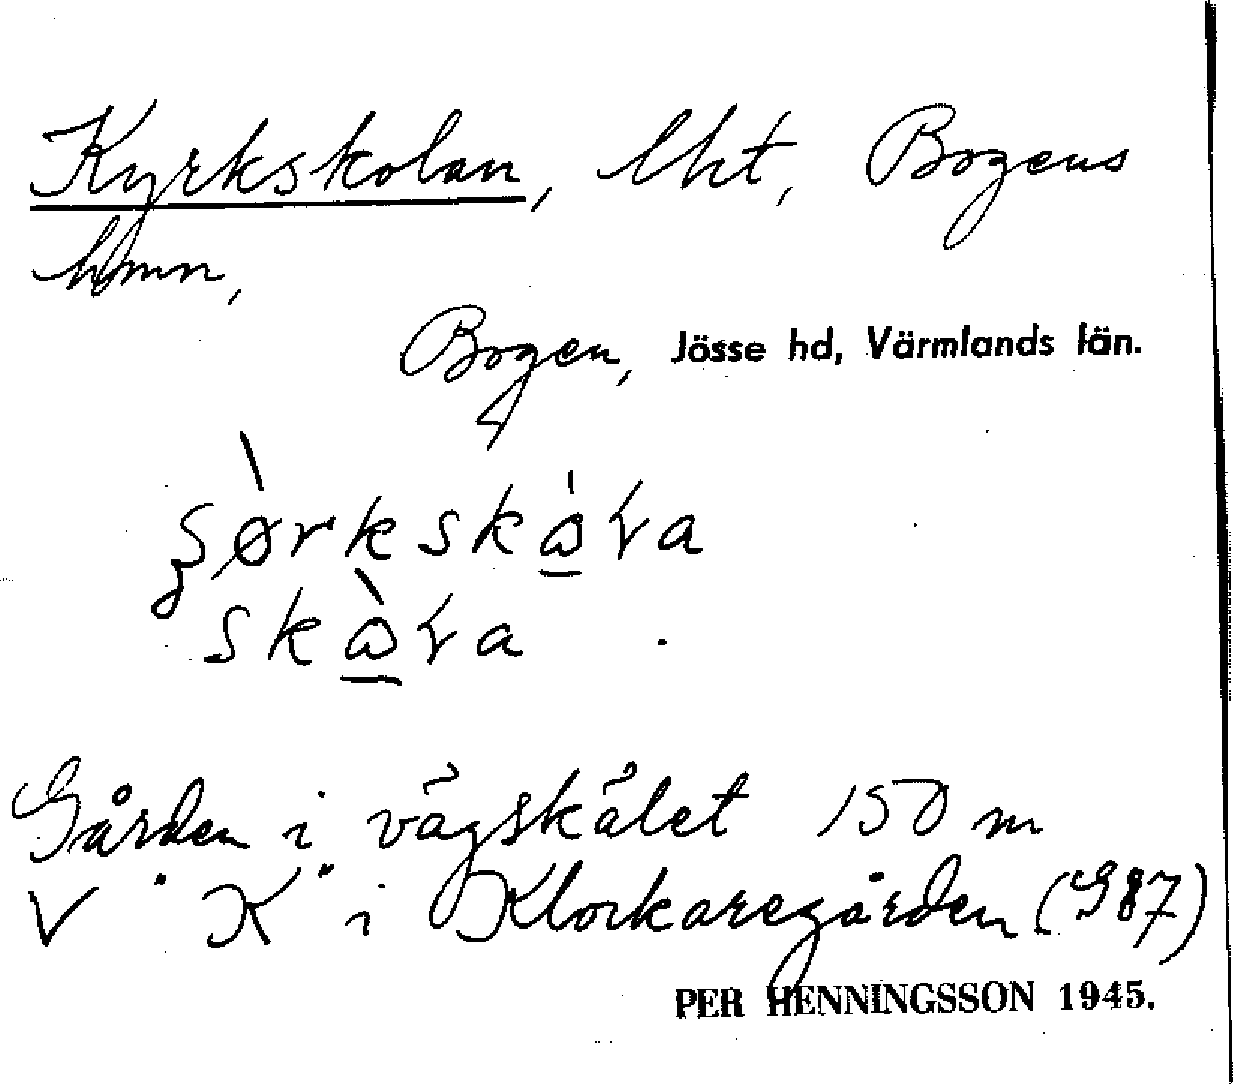 Kyrkskolan, lht, Bogens
hmn,
Bogen, Jösse hd, Värmlands län.
Gården i vägskälet 150 m
V "K" i Klockaregården (G87)
PER HENNINGSSON 1945.